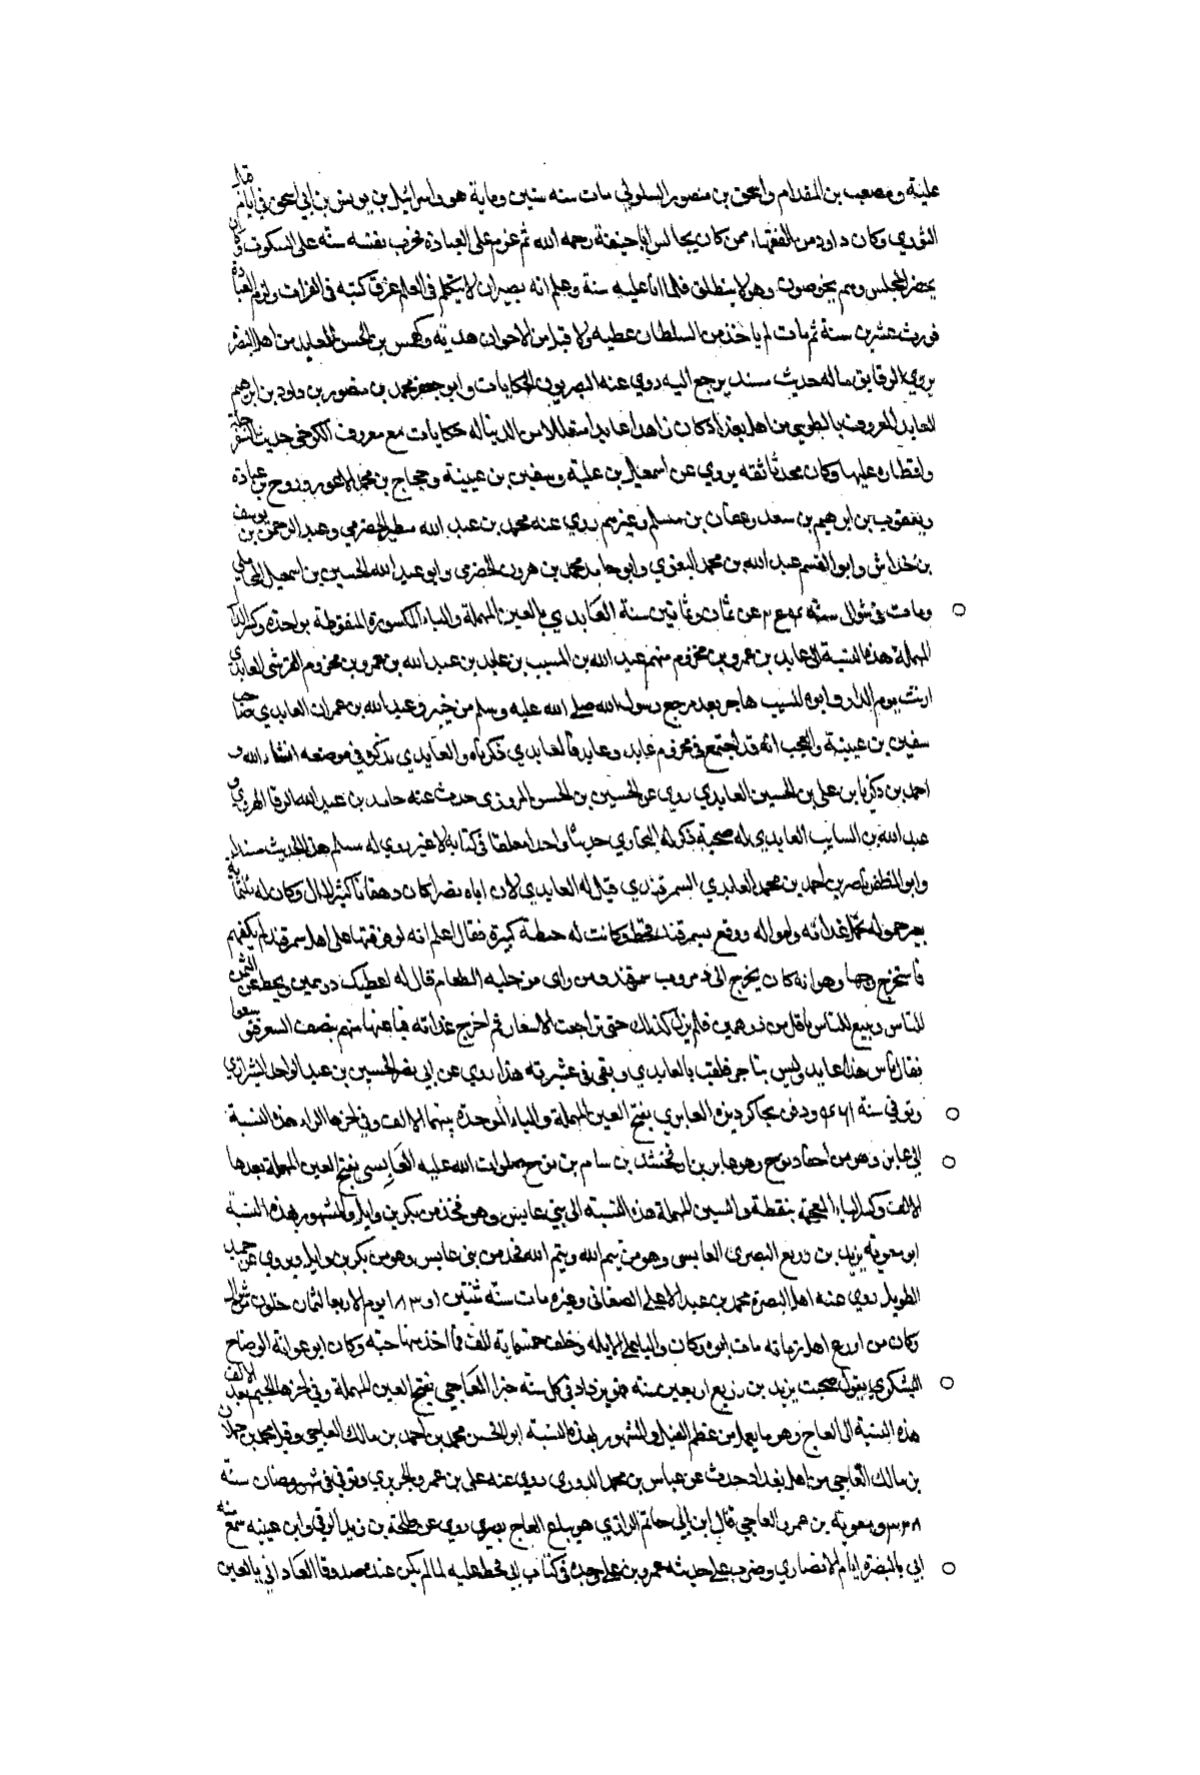 علية ومصعب بن المقدام واسحق بن منصور السلولي مات سنه ستين وماية هو واسرائيل بن يونس بن ابي اسحق في ايام قال
الثوري وكان داود من الفقهاء ممن كان يجالس ابا حنيفة رحمه الله ثم عزم على العبادة فجرب نفسه سنه على السكوت وكان
يحضر المجلس وهم يخوضون وهو لا ينطق فلما اتا عليه سنة وعلم انه يصبر ان لا يتكلم في العلم غرق كتبه في الفرات ولزم العبادة
فورث عشرين سنة ثم مات لم ياخذ من السلطان عطيه ولا قبل من الاخوان هديه وكهمس بن الحسن العابد من اهل البصرة
يروي الرقايق ماله حديث مسند يرجع اليه روي عنه البصريون الحكايات وابو جعفر محمد بن منصور بن داود بن ابرهيم
العابد المعروف بالطوسي من اهل بغداد كان زاهدا عابدا متقللا من الدنيا له حكايات مع معروف الكرخي حديث السفرجلة
وافطاره عليها وكان محدثا ثقه يروي عن اسمعيل بن علية وسفين بن عيينة وحجاج بن محمد الاعور وروح بن عبادة
ويعقوب بن ابرهيم بن سعد وعفان بن مسلم وغيرهم روي عنه محمد بن عبد الله مطين الحضرمي وعبد الرحمن بن يوسف
بن خداش وابو القسم عبد الله بن محمد البغوي وابو حامد محمد بن هرون الحضرى وابو عبد الله الحسين بن اسمعيل المحاملي
ومات في شوال سنه عن ثمان وثمانين سنة العابدي بالعين المهملة والباء المكسورة المنقوطة بواحدة وكسر الدال
المهملة هذه النسبة الى عابد بن عمرو بن مخزوم منهم عبد الله بن المسيب بن عابد بن عبد الله بن عمرو بن مخزوم القرشي العابدي
ارتث يوم الدار وابوه المسيب هاجر بعد مرجع رسول الله صلى الله عليه وسلم من خيبر وعبد الله بن عمران العابدي صاحب
سفين بن عيينة والعجب انه قد اجتمع في مخزوم عابد وعايد فالعابدي ذكرناه والعايدي نذكره في موضعه انشاء الله و
احمد بن زكريا بن علي بن الحسين العابدي روي عن الحسين بن الحسن المروزى حدث عنه حامد بن عبد الله الرفا الهروي و
عبد الله بن السايب العابدي له صحبة ذكر له البخاري حديثا واحدا معلقا في كتابه لا غير روي له مسلم هذا الحديث مسندا
وابو المظفر ناصر بن احمد بن محمد العابدي السمرقندي قيل له العابدي لان اباه نصرا كان دهقانا كثير المال وكان له ثلثماية
بعير حموله تحمل غداته وامواله ووقع بسمرقند قحط وكانت له حنطة كبيرة فقال اعلم انه لو فرقتها على اهل سمرقند لم يكفهم
فاستخرج وجها وهو انه كان يخرج الى درب سمرقند ومن راى من جلبه الطعام قال له اعطيك درهمين ويحط عن الثمن
للناس ويبيع للناس باقل من درهمين فلم يزل كذلك حتى تراجعت الاسعار ثم اخرج غداته فباعها منهم بنصف السعر فتسعوا
فقال ناس هذا عابد وليس بتاجر فلقب بالعابدي وبقي في عشيرته هذا روي عن ابي نصر الحسين بن عبد الواحد الشيرازي
وتوفي سنة ودفن بجاكرديزه العابري بفتح العين المهملة والباء الموحدة بينهما الالف وفي اخرها الراء هذه النسبة
الى عابر وهو من احفاد نوح وهو عابر بن ارفخشد بن سام بن نوح صلوات الله عليه العابسي بفتح العين المهملة بعدها
الالف وكسر الباء المعجمة بنقطة والسين المهملة هذه النسبة الى بني عابس وهو فخذ من بكر بن وايل والمشهور بهذه النسبة
ابو معوية يزيد بن زريع البصري العابسي وهو من تيم الله وتيم الله فخذ من بني عابس وهو من بكر بن وايل ويروي عن حميد
الطويل روي عنه اهل البصرة محمد بن عبد الاعلى الصنعاني وغيره مات سنة ثنتين او ١٨٣ يوم الاربعا لثمان خلون من شوال
وكان من اورع اهل زمانه مات ابوه وكان واليا على الابله وخلف خمسماية الف فما اخذ منها حبة وكان ابو عوانة الوضاح
اليشكري يقول صحبت يزيد بن زريع اربعين سنه فهو يزداد في كل سنه خيرا العاجي بفتح العين المهملة وفي اخرها الجيم بعد الالف
هذه النسبة الى العاج وهو ما يعمل من عظم الفيل والمشهور بهذه النسبة ابو الحسن محمد بن احمد بن مالك العاجي وقيل محمد بن حملان
بن مالك العاجي من اهل بغداد حدث عن عباس بن محمد الدوري روي عنه علي بن عمرو الحريري وتوفي في شهر رمضان سنة
٣٣٨ ومعوية بن عمر العاجي قال ابن ابي حاتم الرازي هو بياع العاج بصري روي عن طلحة بن زيد الرقي وابن عيينه سمع منه
ابي بالبصرة ايام الانصاري وضرب على حديثه عمرو بن علي وجده في كتاب ابي فخط عليه لما لم يكن عنده صدوقا العاداني بالعين